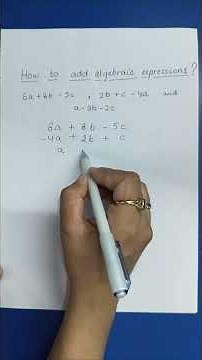 How to add algebraic expressions?
6a + 8b - 5c , 2b + c - 4a and
a - 3b - 2c
6a + 8b - 5c
-4a + 2b + c
a